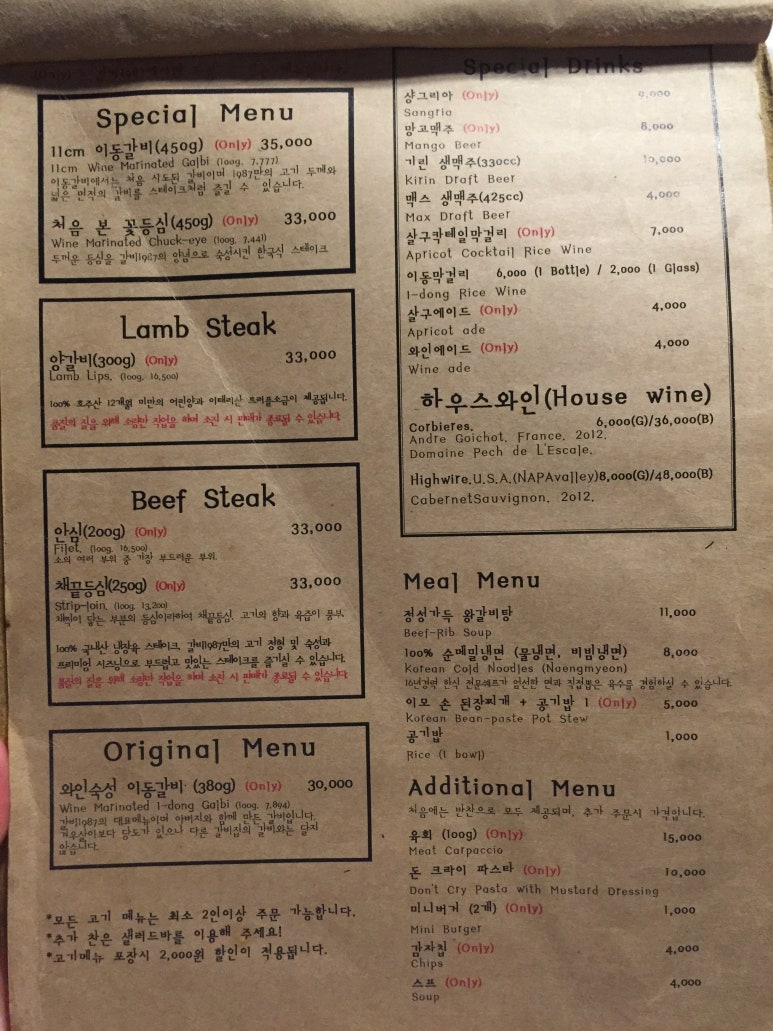 Special Menu
11cm 이동갈비(450g) (Only) 35,000
11cm Wine Marinated Galbi (100g. 7,777)
이동갈비에서는 처음 시도된 갈비이며 1987만의 고기 두께와
넓은 면적의 갈비를 스테이크처럼 즐길 수 있습니다.
처음 본 꽃등심(450g) (Only) 33,000
Wine Marinated Chuck-eye (100g. 7,441)
두꺼운 등심을 갈비1987의 양념으로 숙성시킨 한국식 스테이크
Lamb Steak
양갈비(300g) (Only) 33,000
Lamb Lips. (100g. 16,500)
100% 호주산 12개월 미만의 어린양과 이태리산 트러플소금이 제공됩니다.
품질의 질을 위해 소량만 작업을 하며 소진 시 판매가 종료될 수 있습니다
Beef Steak
안심(200g) (Only) 33,000
Filet. (100g. 16,500)
소의 여러 부위 중 가장 부드러운 부위.
채끝등심(250g) (Only) 33,000
Strip-loin. (100g. 13,200)
채찍이 닿는 부분의 등심이라하여 채끝등심. 고기의 향과 육즙이 풍부.
100% 국내산 냉장육 스테이크. 갈비1987만의 고기 정형 및 숙성과
프리미엄 시즈닝으로 부드럽고 맛있는 스테이크를 즐기실 수 있습니다.
품질의 질을 위해 소량만 작업을 하며 소진 시 판매가 종료될 수 있습니다
Original Menu
와인숙성 이동갈비 (380g) (Only) 30,000
Wine Marinated I-dong Galbi (100g. 7,894)
갈비1987의 대표메뉴이며 아버지와 함께 만든 갈비입니다.
겨우살이보다 당도가 있으나 다른 갈비집의 갈비와는 달지
않습니다.
*모든 고기 메뉴는 최소 2인이상 주문 가능합니다.
*추가 찬은 샐러드바를 이용해 주세요!
*고기메뉴 포장시 2,000원 할인이 적용됩니다.
Special Drinks
샹그리아 (Only)
Sangria
망고맥주 (Only) 8,000
Mango Beer
기린 생맥주(330cc) 10,000
Kirin Draft Beer
맥스 생맥주(425cc) 4,000
Max Draft Beer
살구칵테일막걸리 (Only) 7,000
Apricot Cocktail Rice Wine
이동막걸리 6,000 (1 Bottle) / 2,000 (1 Glass)
I-dong Rice Wine
살구에이드 (Only) 4,000
Apricot ade
와인에이드 (Only) 4,000
Wine ade
하우스와인(House wine)
Corbieres. 6,000(G)/36,000(B)
Andre Goichot. France. 2012.
Domaine Pech de L'Escale.
Highwire.U.S.A.(NAPAvalley)8,000(G)/48,000(B)
CabernetSauvignon. 2012.
Meal Menu
정성가득 왕갈비탕 11,000
Beef-Rib Soup
100% 순메밀냉면 (물냉면, 비빔냉면) 8,000
Korean Cold Noodles (Naengmyeon)
16년경력 한식 전문쉐프가 엄선한 면과 직접뽑은 육수를 경험하실 수 있습니다.
이모 손 된장찌개 + 공기밥 1 (Only) 5,000
Korean Bean-paste Pot Stew
공기밥 1,000
Rice (1 bowl)
Additional Menu
처음에는 반찬으로 모두 제공되며, 추가 주문시 가격입니다.
육회 (100g) (Only) 15,000
Meat Carpaccio
돈 크라이 파스타 (Only) 10,000
Don't Cry Pasta with Mustard Dressing
미니버거 (2개) (Only) 1,000
Mini Burger
감자칩 (Only) 4,000
Chips
스프 (Only) 4,000
Soup